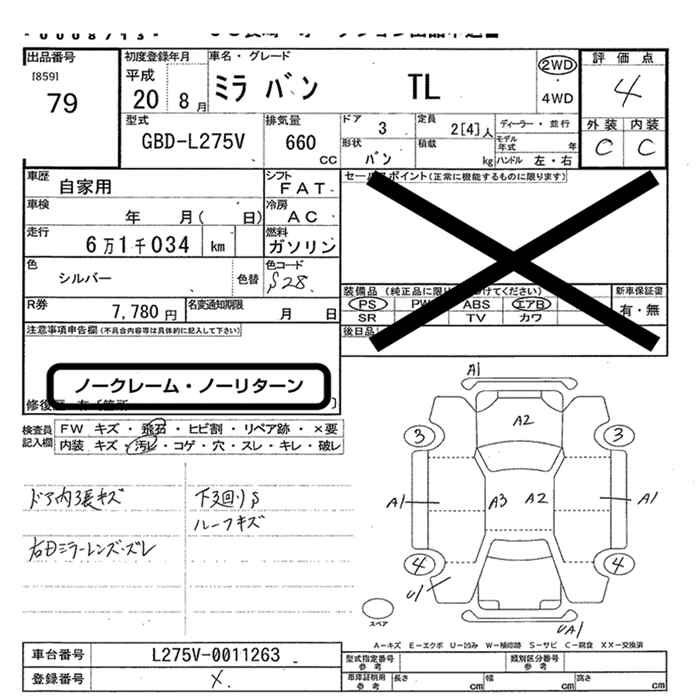 出品番号
[859]
79
初度登録年月
平成
20 8月
車名・グレード
ミラ バン TL
2WD
4WD
評価点
4
外装 内装
C C
型式
GBD-L275V
排気量
660
cc
ドア
3
定員
2[4]人
ディーラー・並行
モデル年式 年
形状
バン
積載
kg
ハンドル 左・右
車歴
自家用
シフト
FAT
セールスポイント(正常に機能するものに限ります)
車検
年 月( 日)
冷房
AC
走行
6万1千034 km
燃料
ガソリン
色
シルバー
色替
色コード
S28
装備品
PS PW ABS エアB
SR TV カワ
新車保証書
有・無
後日品
R券
7,780円
名変通知期限
月 日
注意事項申告欄(不具合内容等は具体的に記入して下さい)
ノークレーム・ノーリターン
検査員
記入欄
FW キズ・飛石・ヒビ割・リペア跡・×要
内装 キズ・汚レ・コゲ・穴・スレ・キレ・破レ
ドア内張キズ
下廻りS
ルーフキズ
右Dミラーレンズズレ
A1
A2
3 3
A1 A3 A2 A1
4 4
U1
UA1
スペア
A-キズ E-エクボ U-凹み W-補修跡 S-サビ C-腐食 XX-交換済
車台番号
L275V-0011263
登録番号
X.
型式指定番号
参考
類別区分番号
参考
車庫証明用
参考
長さ cm
幅 cm
高さ cm